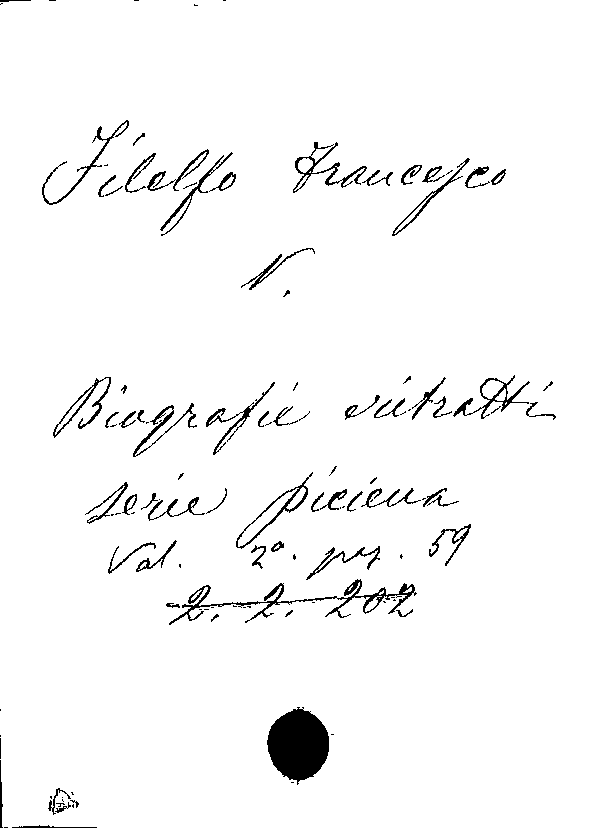 Filelfo Francesco
V.
Biografie ritratti
serie piciena
Vol. 2º. pag. 59
2. 2. 202